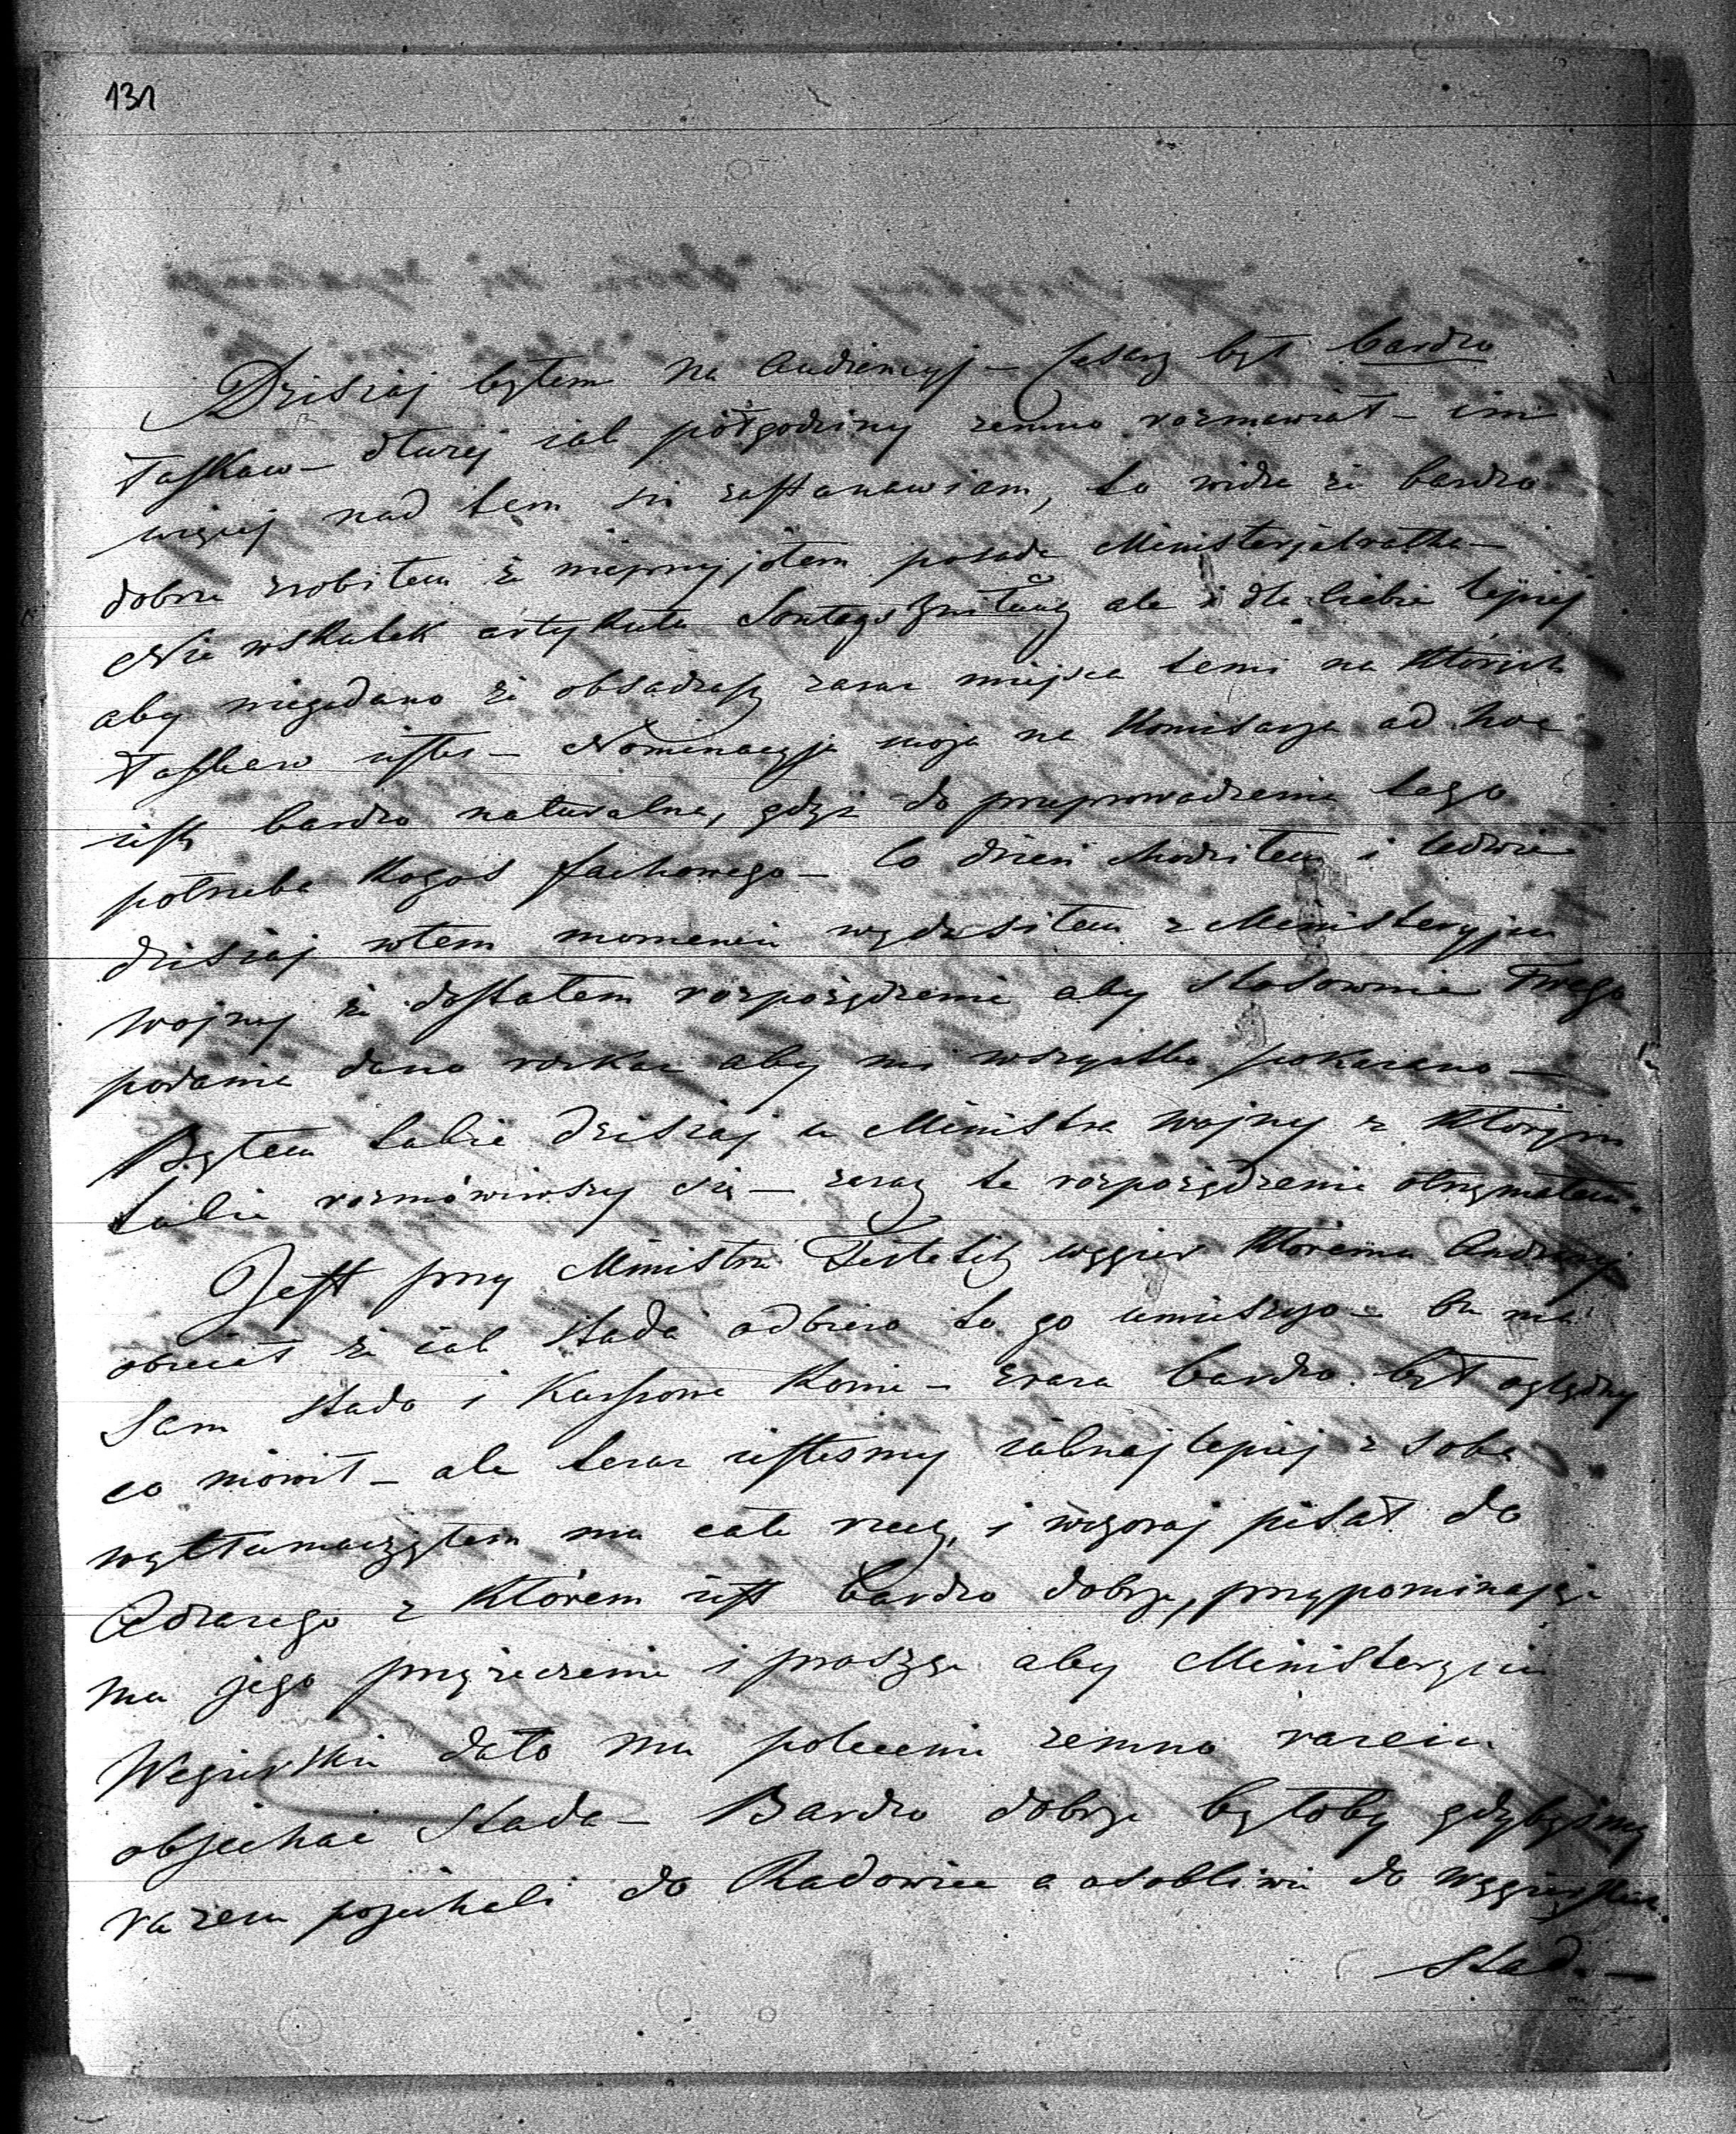 131
Dzisiaj byłem na Audiencyj – Cesarz był bardzo
łaskaw – dłużej jak półgodziny zemną rozmawiał – im
więcej nad tem się zastanawiam, to widzę że bardzo
dobrze zrobiłem że nieprzyjąłem posadę Ministerjalratha –
Nie wskutek artykułu Sontagszeitung ale i dla Ciebie lepiej
aby niegadano że obsadzasz zaraz miejsca temi na których
łaskaw jesteś – Nominacyja moja na Komisarza ad hoc
jest bardzo naturalna, gdyż do przeprowadzenia tego
potrzeba kogoś fachowego – Co dzień chodziłem i ledwie
dzisiaj wtem momencie wydusiłem z Ministeryjum
wojny że dostałem rozporządzenie aby stosownie Twego
podania dano rozkaz aby mi wszystko pokazano –
Byłem także dzisiaj u Ministra wojny z którym
także rozmówiwszy się – zaraz te rozporządzenie otrzymałem.
Jest przy Ministrze Festetitz węgier któremu Andrassy
obiecał że jak stada odbiera to go umieszczą – bo ma
sam stado i Kursowe Konie – zrazu bardzo był oględny
co mówił – ale teraz jesteśmy jaknajlepiej z sobą
wytłumaczyłem mu całe rzeczy, i wczoraj pisał do
z którem jest bardzo dobrze, przypominając
mu jego przyrzeczenie i prosząc aby Ministeryum
Węgierskie dało mu polecenie zemną razem
objechać stada – Bardzo dobrze byłoby gdybyśmy
razem pojechali do Radowiec a osobliwie do węgierskich
stad. –